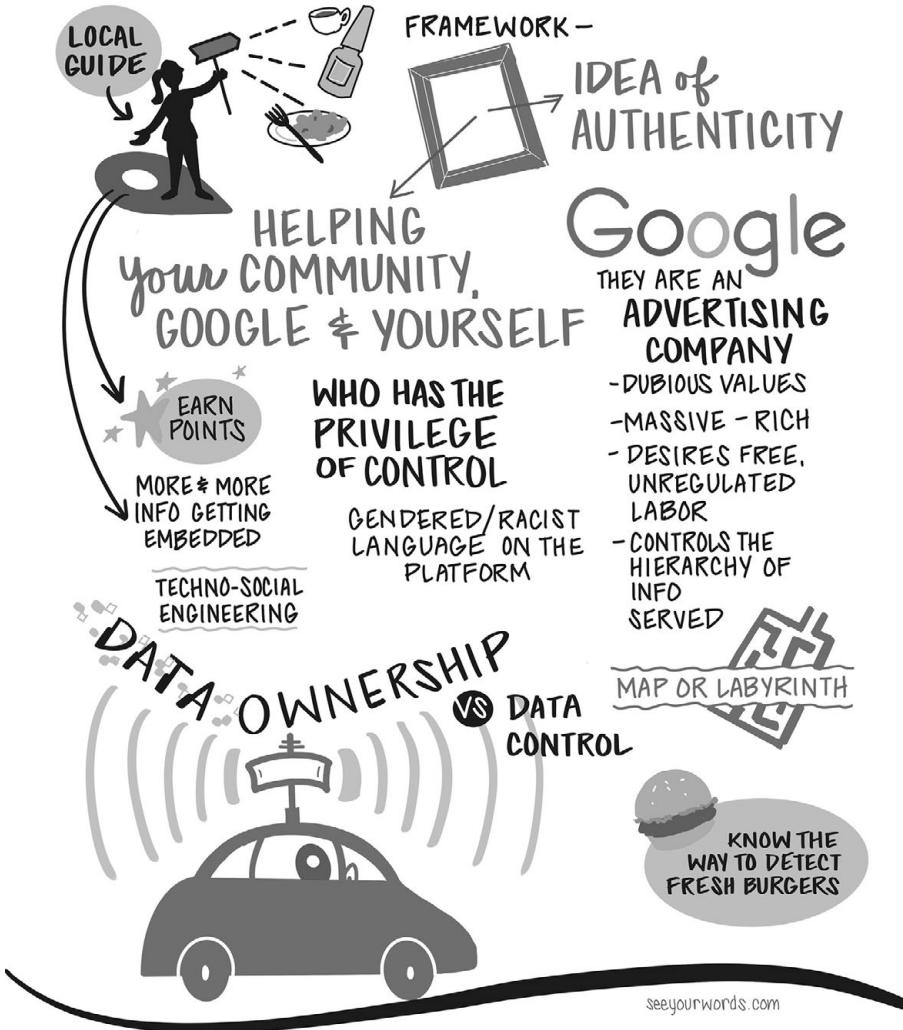 LOCAL
GUIDE
FRAMEWORK –
IDEA of
AUTHENTICITY
HELPING
your COMMUNITY,
GOOGLE & YOURSELF
Google
THEY ARE AN
ADVERTISING
COMPANY
- DUBIOUS VALUES
- MASSIVE - RICH
- DESIRES FREE,
UNREGULATED
LABOR
- CONTROLS THE
HIERARCHY OF
INFO
SERVED
EARN
POINTS
MORE & MORE
INFO GETTING
EMBEDDED
TECHNO-SOCIAL
ENGINEERING
WHO HAS THE
PRIVILEGE
OF CONTROL
GENDERED/RACIST
LANGUAGE ON THE
PLATFORM
DATA OWNERSHIP
VS DATA
CONTROL
MAP OR LABYRINTH
KNOW THE
WAY TO DETECT
FRESH BURGERS
seeyourwords.com